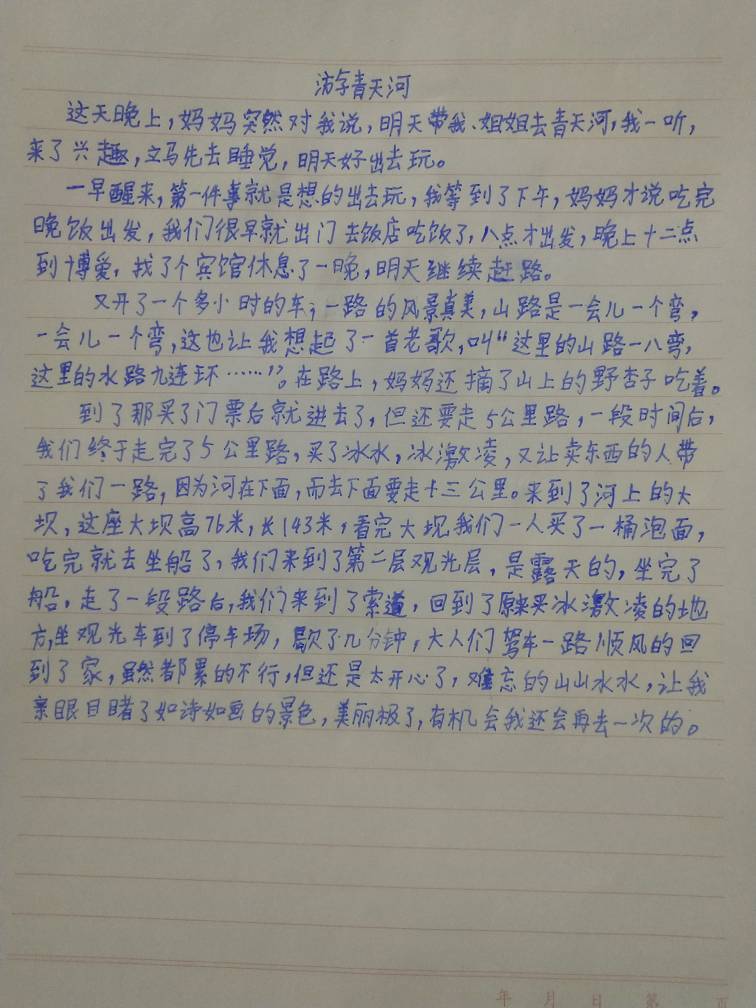 游青天河
这天晚上，妈妈突然对我说，明天带我、姐姐去青天河，我一听，
来了兴趣，立马先去睡觉，明天好出去玩。
一早醒来，第一件事就是想的出去玩，我等到了下午，妈妈才说吃完
晚饭出发，我们很早就出门去饭店吃饭了，八点才出发，晚上十二点
到博爱，找了个宾馆休息了一晚，明天继续赶路。
又开了一个多小时的车，一路的风景真美，山路是一会儿一个弯，
一会儿一个弯，这也让我想起了一首老歌，叫“这里的山路一八弯，
这里的水路九连环……”。在路上，妈妈还摘了山上的野杏子吃着。
到了那买了门票后就进去了，但还要走5公里路，一段时间后，
我们终于走完了5公里路，买了冰水，冰激凌，又让卖东西的人带
了我们一路，因为河在下面，而去下面要走十三公里。来到了河上的大
坝，这座大坝高76米，长143米，看完大坝我们一人买了一桶泡面，
吃完就去坐船了，我们来到了第二层观光层，是露天的，坐完了
船，走了一段路后，我们来到了索道，回到了原来买冰激凌的地
方，坐观光车到了停车场，歇了几分钟，大人们驾车一路顺风的回
到了家，虽然都累的不行，但还是太开心了，难忘的山山水水，让我
亲眼目睹了如诗如画的景色，美丽极了，有机会我还会再去一次的。
年 月 日 第 页